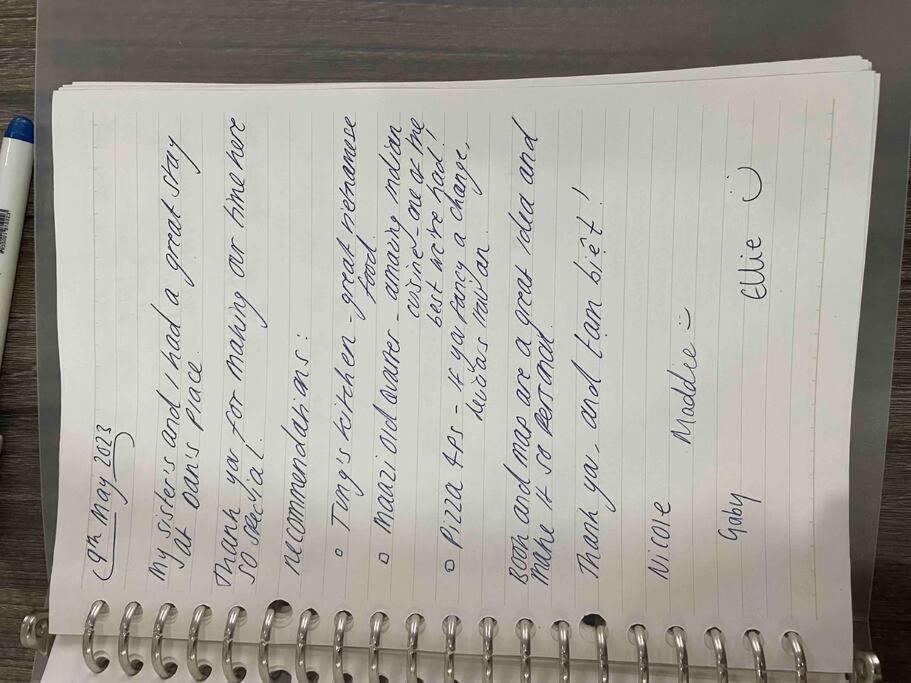 9th May 2023
My sister's and I had a great stay
at Dan's Place.
Thank you for making our time here
so special!
recommendations:
Tung's kitchen - great vietnamese
food.
maazi old quarter - amazing indian
cuisine - one of the
best we've had!
Pizza 4Ps - if you fancy a change,
italian.
Book and map are a great idea and
make it so personal.
Thank you, and tạm biệt!
Nicole
Maddie
Gaby
Ellie